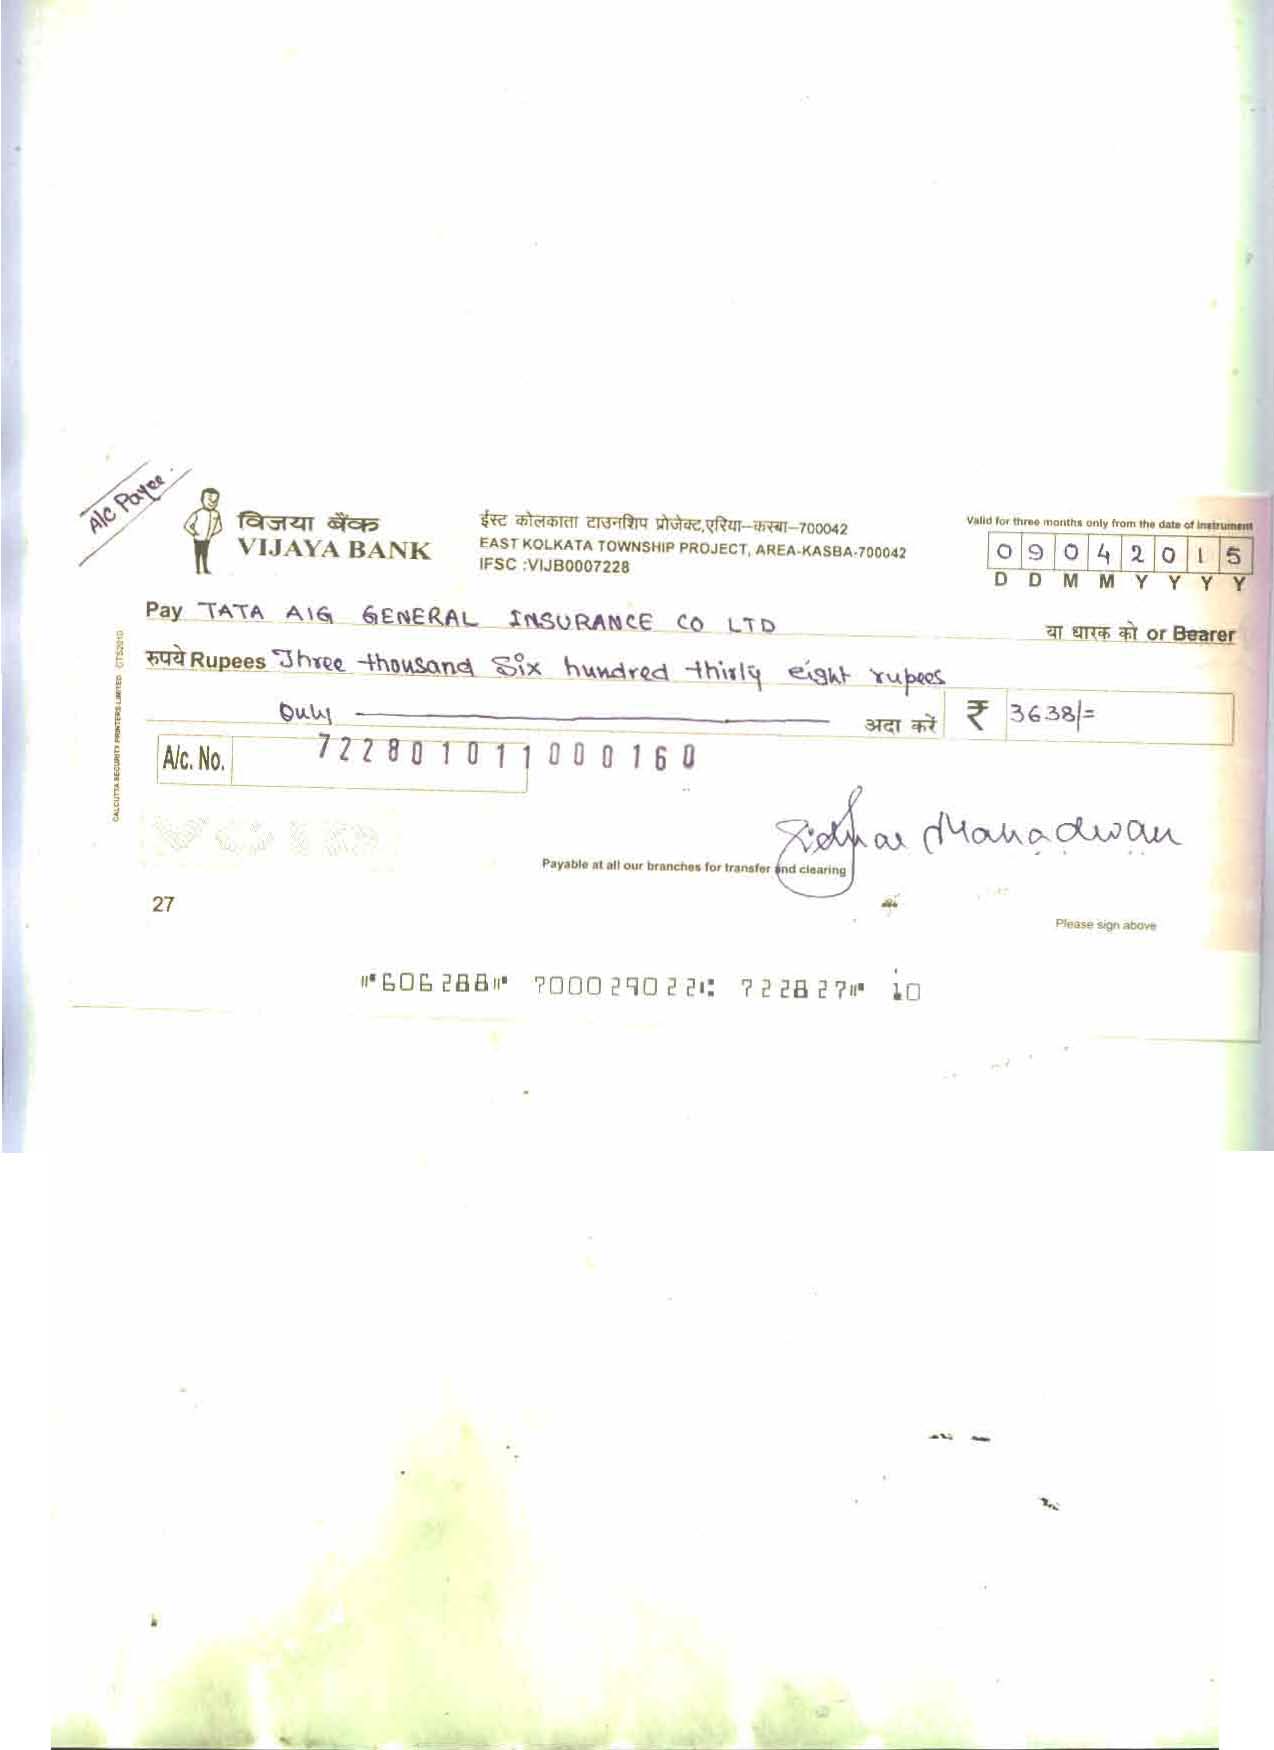 A/C Payee.
विजया बैंक
VIJAYA BANK
ईस्ट कोलकाता टाउनशिप प्रोजेक्ट,एरिया–कस्बा–700042
EAST KOLKATA TOWNSHIP PROJECT, AREA-KASBA-700042
IFSC :VIJB0007228
Valid for three months only from the date of instrument
0 9 0 4 2 0 1 5
D D M M Y Y Y Y
Pay TATA AIG GENERAL INSURANCE CO LTD
या धारक को or Bearer
रुपये Rupees Three thousand Six hundred thirty eight rupees
Only अदा करें ₹ 3638/=
A/c. No. 722801011000160
CALCUTTA SECURITY PRINTERS LIMITED CTS2010
Payable at all our branches for transfer and clearing
27
Please sign above
⑈606288⑈ 700029022⑆ 722827⑈ 10